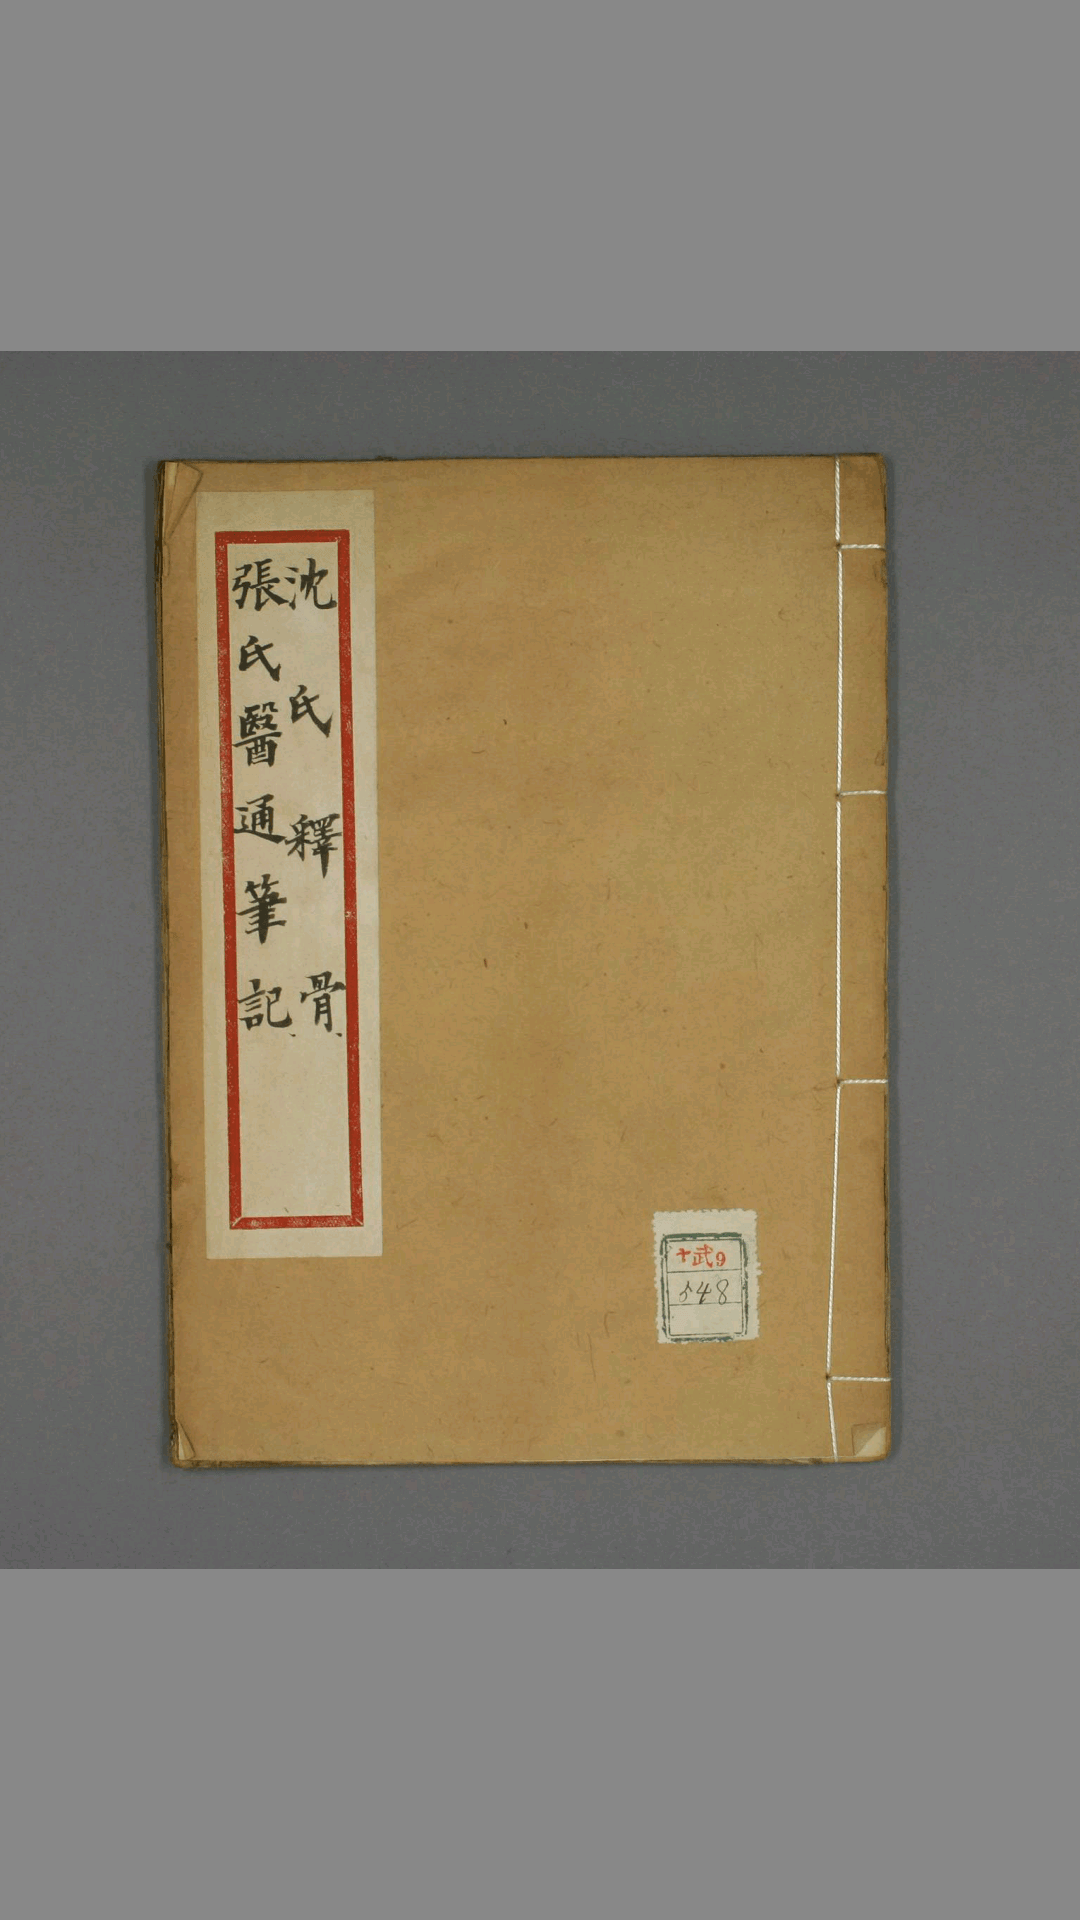 沈氏釋骨
張氏醫通筆記
十武9
548